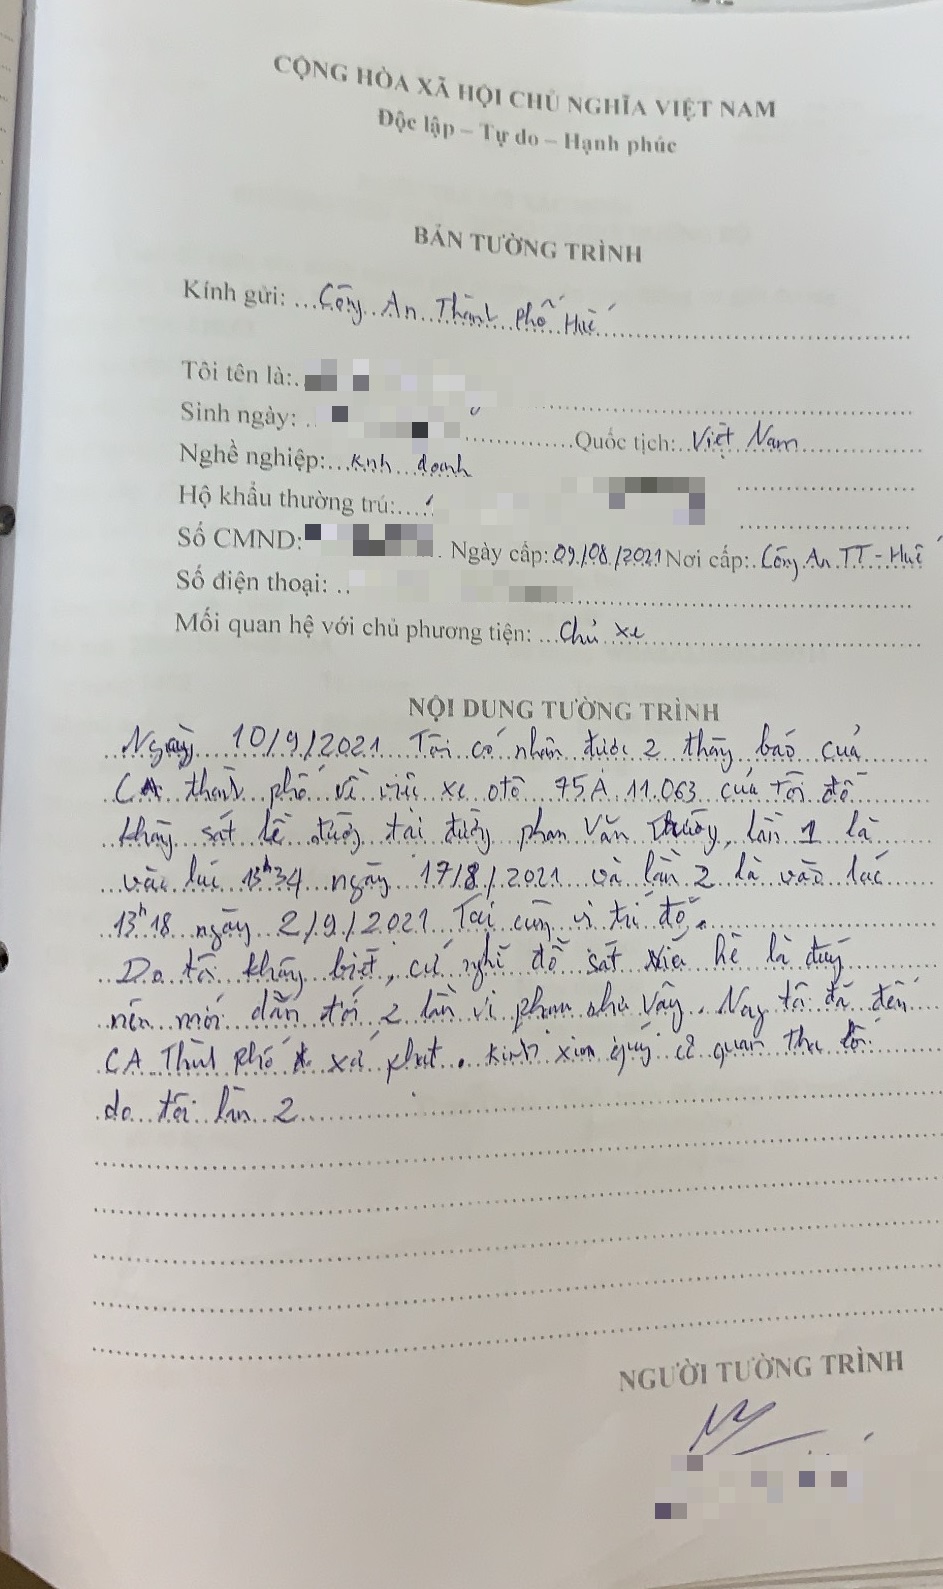 CỘNG HÒA XÃ HỘI CHỦ NGHĨA VIỆT NAM
Độc lập – Tự do – Hạnh phúc
BẢN TƯỜNG TRÌNH
Kính gửi: Công An Thành Phố Huế
Tôi tên là:
Sinh ngày: Quốc tịch: Việt Nam
Nghề nghiệp: Knh doanh
Hộ khẩu thường trú:
Số CMND: Ngày cấp: 09/08/2021 Nơi cấp: Công An TT - Huế
Số điện thoại:
Mối quan hệ với chủ phương tiện: Chủ xe
NỘI DUNG TƯỜNG TRÌNH
Ngày 10/9/2021 Tôi có nhân được 2 thông báo của
CA thành phố về việc xe otô 75A 11.063 của tôi đỗ
không sát lề đường tại đường phan Văn Trường, lần 1 là
vào lúc 13h34 ngày 17/8/2021 và lần 2 là vào lúc
13h18 ngày 2/9/2021 Tại cùng vị trí đó.
Do tôi không biết, cứ nghĩ đỗ sát vỉa hè là đúng
nên mới dẫn tới 2 lần vi phạm như vậy. Nay tôi đã đến
CA Thành phố xử phạt. Kính xin quý cơ quan tha lỗi
do tôi lần 2
NGƯỜI TƯỜNG TRÌNH